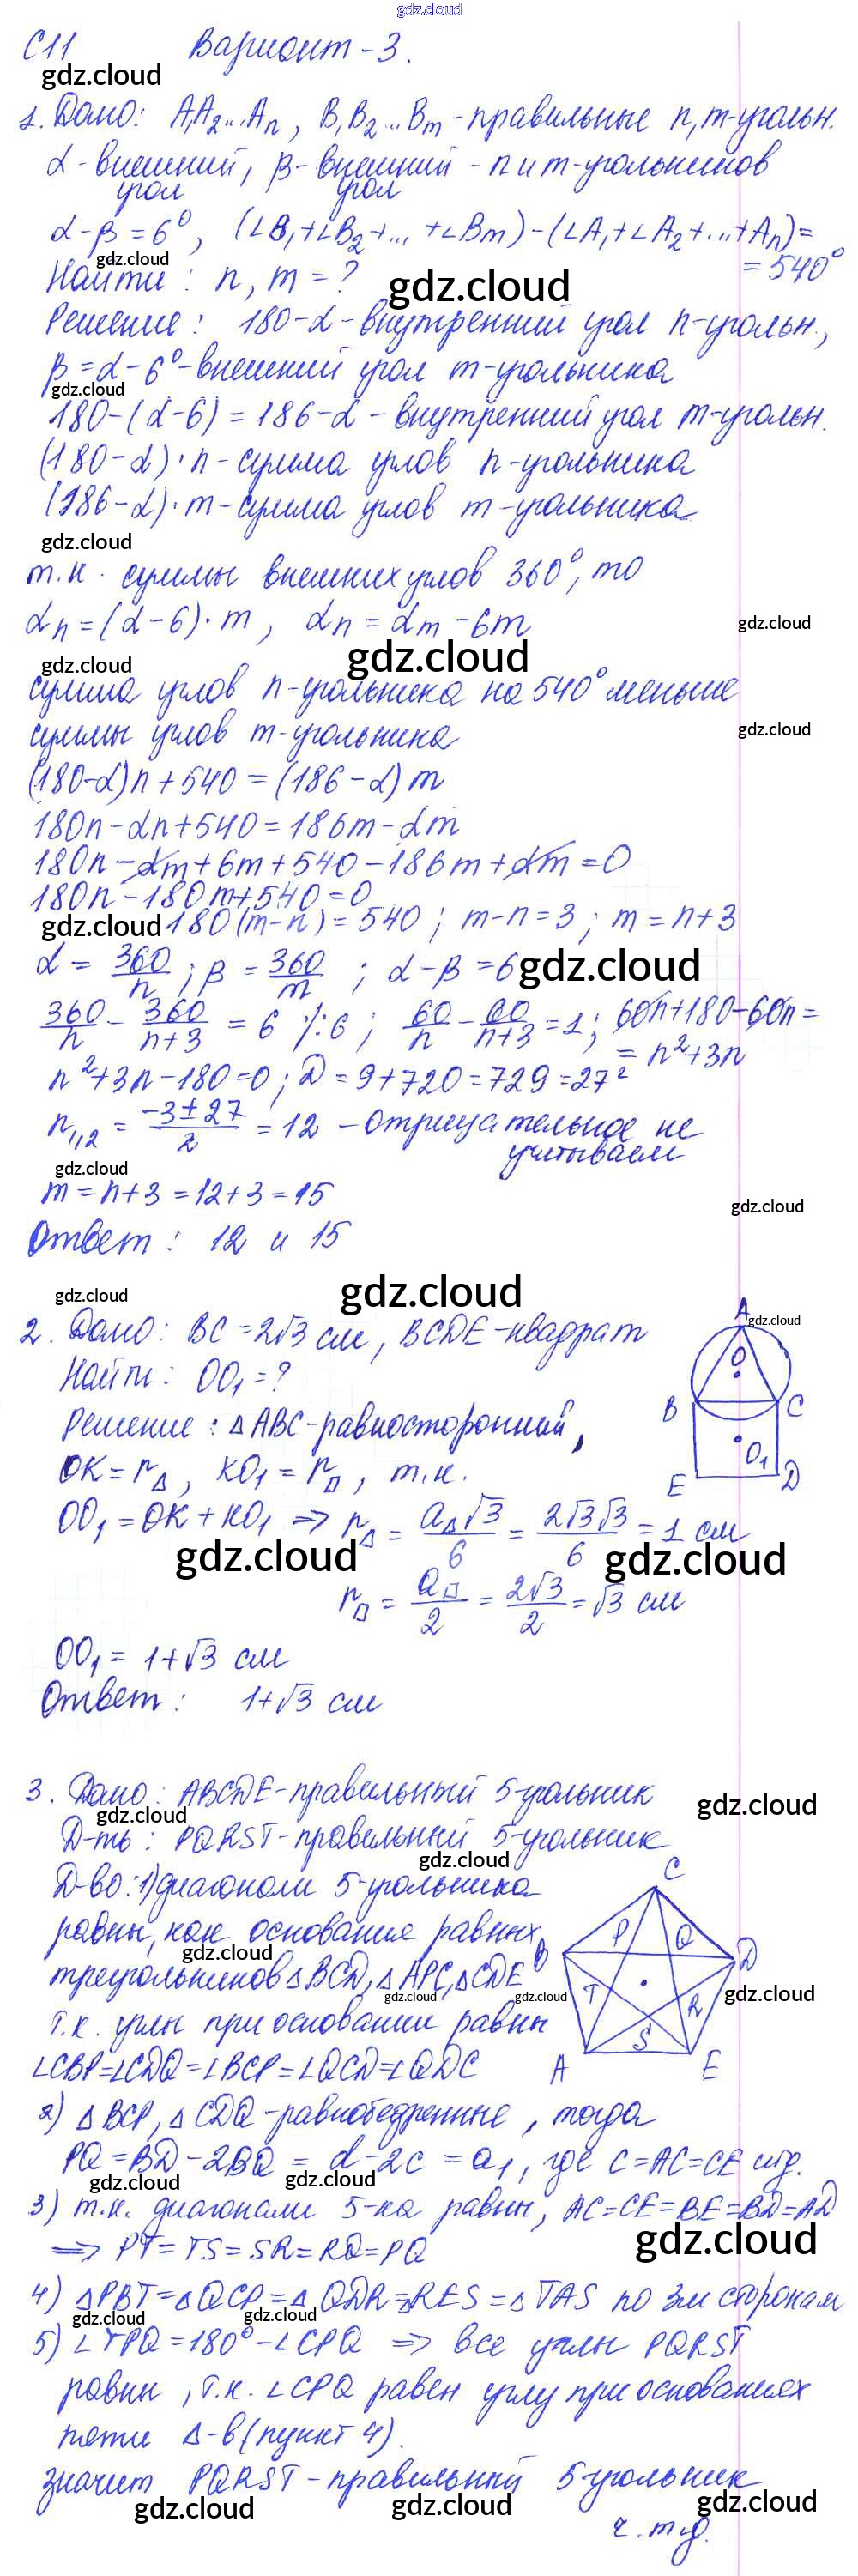 gdz.cloud
С11 Вариант-3.
gdz.cloud
1. Дано: A₁A₂...Aₙ, B₁B₂...Bₘ - правильные n,m-угольн.
α-внешний угол, β-внешний угол - n и m-угольников
α-β=6°, (∠B₁+∠B₂+...+∠Bₘ)-(∠A₁+∠A₂+...+Aₙ)=
=540°
gdz.cloud
Найти: n, m = ?
gdz.cloud
Решение: 180-α-внутренний угол n-угольн.,
β=α-6°-внешний угол m-угольника
gdz.cloud
180-(α-6)=186-α - внутренний угол m-угольн.
(180-α)·n-сумма углов n-угольника
(186-α)·m-сумма углов m-угольника
gdz.cloud
т.к. суммы внешних углов 360°, то
αn=(α-6)·m, αn=αm-6m
gdz.cloud
gdz.cloud
gdz.cloud
сумма углов n-угольника на 540° меньше
суммы углов m-угольника
gdz.cloud
(180-α)n+540=(186-α)m
180n-αn+540=186m-αm
180n-αm+6m+540-186m+αm=0
180n-180m+540=0
gdz.cloud
180(m-n)=540; m-n=3; m=n+3
α=360/n; β=360/m; α-β=6
gdz.cloud
360/n-360/(n+3)=6 /:6; 60/n-60/(n+3)=1; 60n+180-60n=
=n²+3n
n²+3n-180=0; D=9+720=729=27²
n₁,₂=(-3±27)/2=12 - отрицательное не
учитываем
gdz.cloud
m=n+3=12+3=15
gdz.cloud
Ответ: 12 и 15
gdz.cloud
gdz.cloud
2. Дано: BC=2√3 см, BCDE-квадрат
A
gdz.cloud
O
B
C
O₁
E
D
Найти: OO₁=?
Решение: △ABC-равносторонний,
OK=r△, KO₁=r□, т.к.
OO₁=OK+KO₁ ⇒ r△=a△√3/6=2√3√3/6=1 см
gdz.cloud
gdz.cloud
r□=a□/2=2√3/2=√3 см
OO₁=1+√3 см
Ответ: 1+√3 см
3. Дано: ABCDE-правильный 5-угольник
gdz.cloud
gdz.cloud
Д-ть: PQRST-правильный 5-угольник
gdz.cloud
C
P
Q
B
D
T
R
S
A
E
Д-во: 1) диагонали 5-угольника
равны, как основания равных
gdz.cloud
треугольников △BCD, △APC, △CDE
gdz.cloud
gdz.cloud
gdz.cloud
т.к. углы при основании равны
∠CBP=∠CDQ=∠BCP=∠QCD=∠QDC
2) △BCP, △CDQ-равнобедренные, тогда
PQ=BD-2BQ=d-2c=a₁, где c=AC=CE итд.
gdz.cloud
gdz.cloud
3) т.к. диагонали 5-ка равны, AC=CE=BE=BD=AD
⇒ PT=TS=SR=RQ=PQ
gdz.cloud
4) △PBT=△QCP=△QDR=RES=△TAS по 3м сторонам
gdz.cloud
gdz.cloud
5) ∠TPQ=180°-∠CPQ ⇒ все углы PQRST
равны, т.к. ∠CPQ равен углу при основаниях
пяти △-в (пункт 4).
значит PQRST-правильный 5-угольник
gdz.cloud
gdz.cloud
gdz.cloud
ч.т.д.